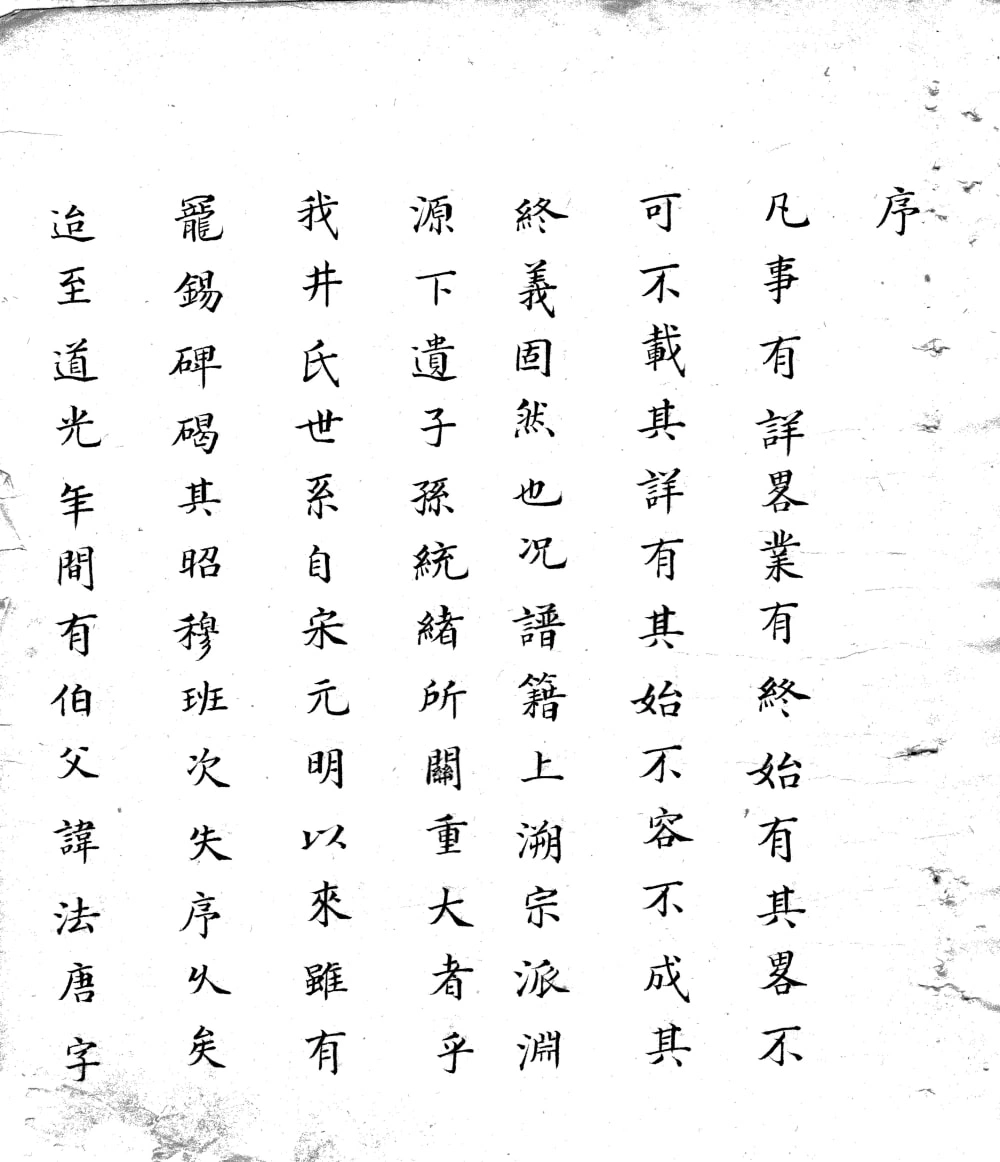 序
凡事有詳畧業有終始有其畧不
可不載其詳有其始不容不成其
終義固然也况譜籍上溯宗派淵
源下遺子孫統緒所關重大者乎
我井氏世系自宋元明以來雖有
寵錫碑碣其昭穆班次失序久矣
迨至道光年間有伯父諱法唐字